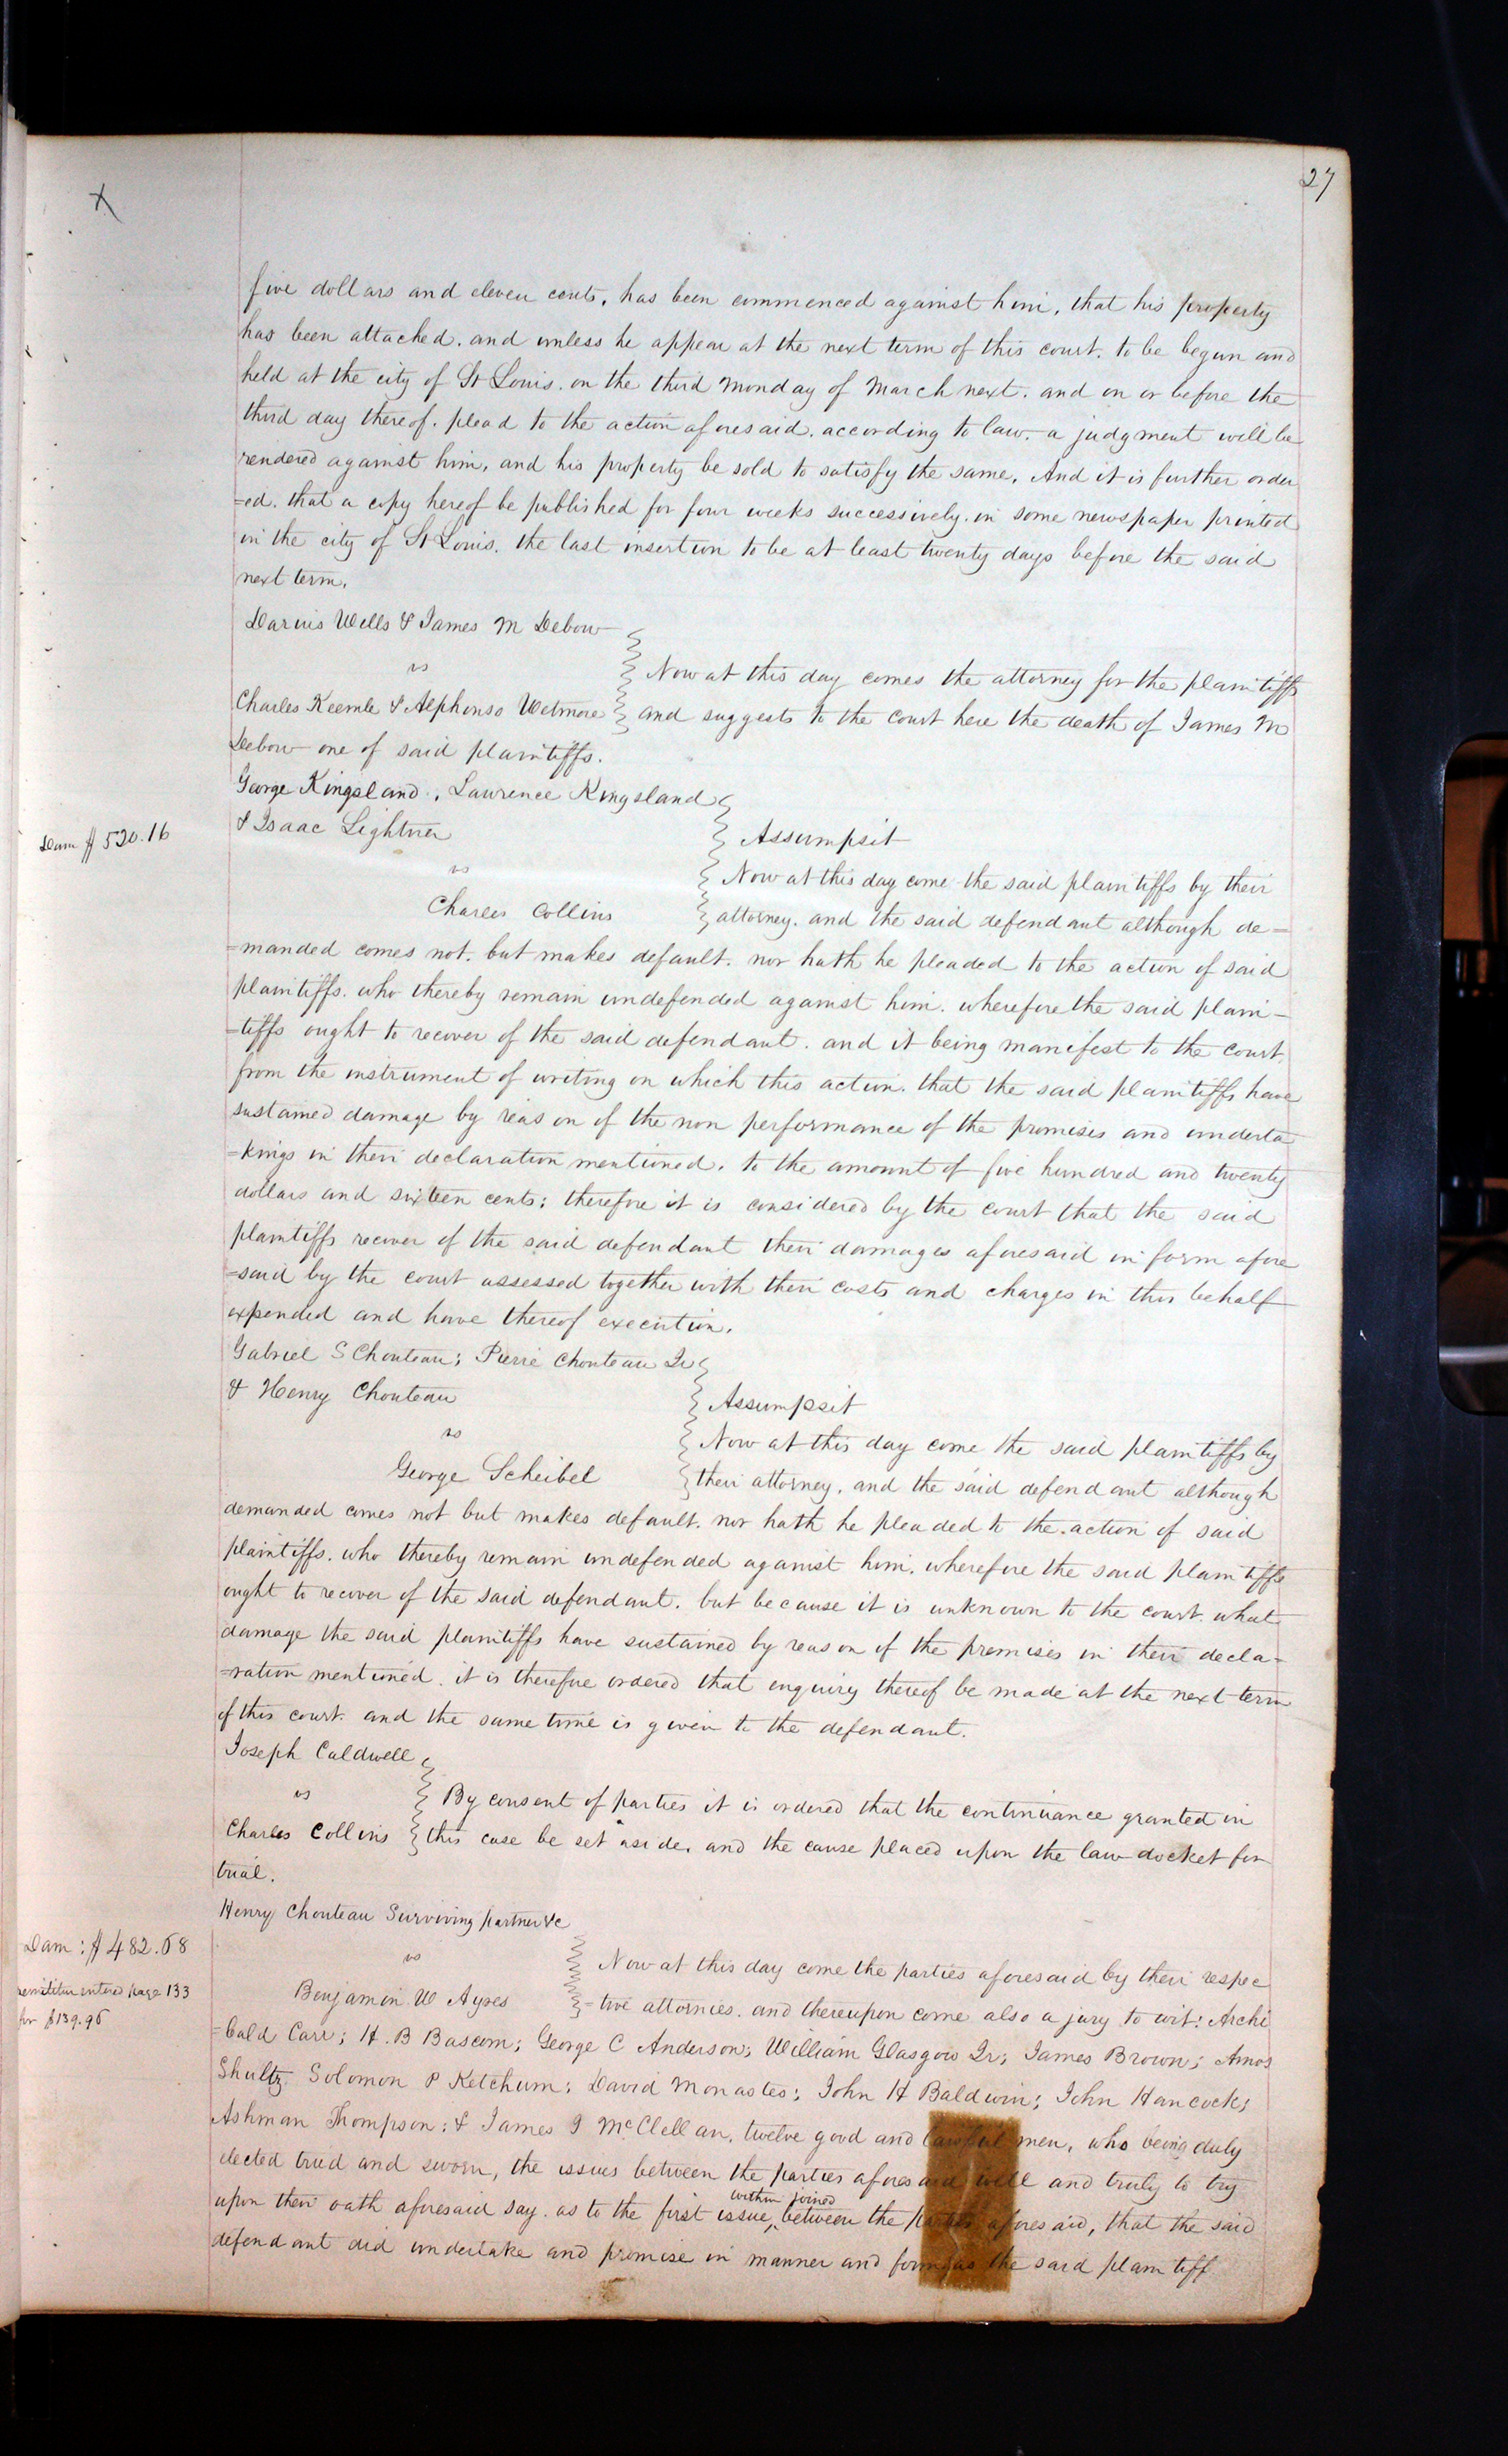 27
X
five dollars and eleven cents, has been commenced against him, that his property
has been attached. and unless he appear at the next term of this court. to be begun and
held at the city of St Louis. on the third Monday of March next. and on or before the
third day thereof. plead to the action aforesaid. according to law. a judgment will be
rendered against him, and his property be sold to satisfy the same. And it is further order
=ed. that a copy hereof be published for four weeks successively. in some newspaper printed
in the city of St Louis. the last insertion to be at least twenty days before the said
next term.
Darius Wells & James M Debow
vs
Charles Keemle & Alphonso Wetmore
Now at this day comes the attorney for the plaintiffs
and suggests to the court here the death of James M
Debow one of said plaintiffs.
George Kingsland, Lawrence Kingsland
& Isaac Lightner
vs
Charles Collins
Dam $520.16
Assumpsit
Now at this day come the said plaintiffs by their
attorney. and the said defendant although de=
=manded comes not. but makes default. nor hath he pleaded to the action of said
plaintiffs. who thereby remain undefended against him. wherefore the said plain-
=tiffs ought to recover of the said defendant. and it being manifest to the court.
from the instrument of writing on which this action. that the said plaintiffs have
sustained damage by reason of the non performance of the promises and underta
=kings in their declaration mentioned. to the amount of five hundred and twenty
dollars and sixteen cents; therefore it is considered by the court that the said
plaintiffs recover of the said defendant their damages aforesaid in form afore
=said by the court assessed together with their costs and charges in this behalf
expended and have thereof execution.
Gabriel S Chouteau; Pierre Chouteau Jr
& Henry Chouteau
vs
George Scheibel
Assumpsit
Now at this day come the said plaintiffs by
their attorney. and the said defendant although
demanded comes not but makes default. nor hath he pleaded to the action of said
plaintiffs. who thereby remain undefended against him. wherefore the said plaintiffs
ought to recover of the said defendant. but because it is unknown to the court. what
damage the said plaintiffs have sustained by reason of the premises in their decla=
=ration mentioned. it is therefore ordered that enquiry thereof be made at the next term
of this court. and the same time is given to the defendant.
Joseph Caldwell
vs
Charles Collins
By consent of parties it is ordered that the continuance granted in
this case be set aside. and the cause placed upon the law docket for
trial.
Henry Chouteau Surviving partner &c
vs
Benjamin W Ayres
Dam: $482.68
remittitur entered page 133
for $139.96
Now at this day come the parties aforesaid by their respec
=tive attornies. and thereupon come also a jury to wit: Archi
=bald Carr; H. B Bascom; George C Anderson; William Glasgow Jr; James Brown; Amos
Shultz Solomon P Ketchum; David Monastes; John H Baldwin; John Hancock;
Ashman Thompson; & James J McClellan, twelve good and lawful men, who being duly
elected tried and sworn, the issues between the parties aforesaid well and truly to try
upon their oath aforesaid say. as to the first issue, within joined between the parties aforesaid, that the said
defendant did undertake and promise in manner and form as the said plaintiff